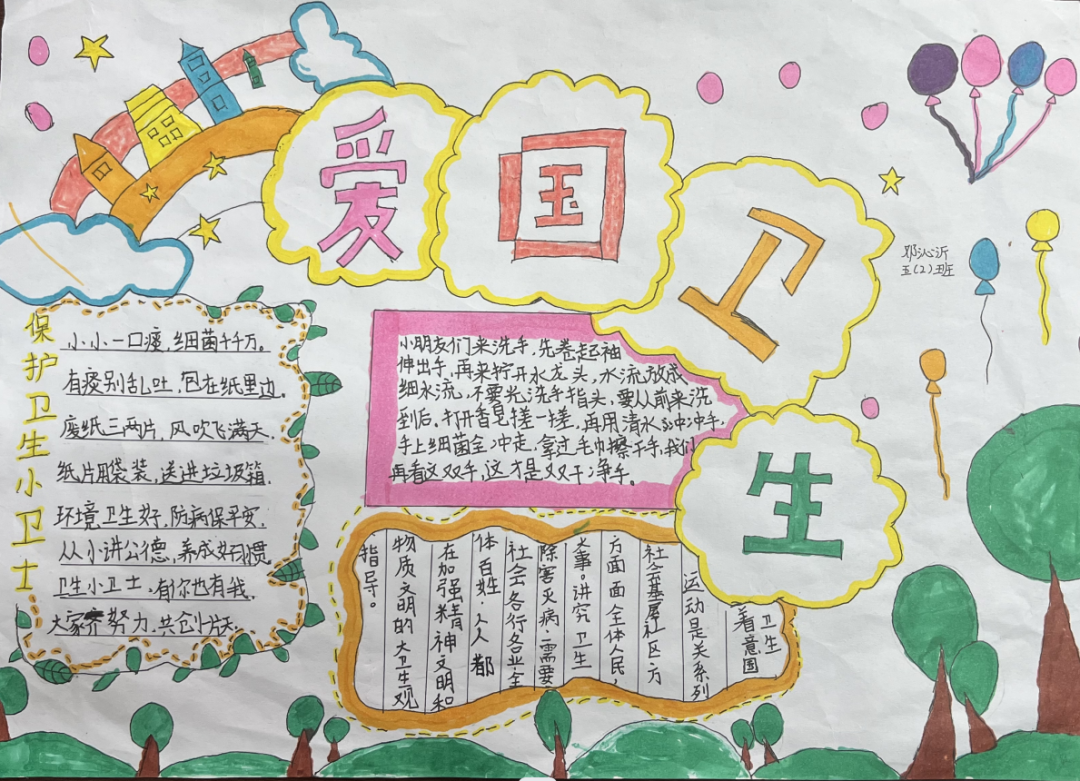 爱国卫生
邓沁沂
五(2)班
保护卫生小卫士
小小一口痰,细菌千千万。
有痰别乱吐,包在纸里边。
废纸三两片,风吹飞满天.
纸片用袋装,送进垃圾箱.
环境卫生好,防病保平安.
从小讲公德,养成好习惯
卫生小卫士,有你也有我.
大家齐努力,共创片天.
小朋友们来洗手,先卷起袖
伸出手,再来拧开水龙头,水流放成
细水流,不要光洗手指头,要从前来洗
到后。打开香皂搓一搓,再用清水冲冲手,
手上细菌全冲走,拿过毛巾擦干手,我们
再看这双手,这才是双干净手。
卫生
着意国
运动是关系列
社会基层社区方
方面面全体人民,
大事。讲究卫生
除害灭病,需要
社会各行各业,全
体百姓,人人都
在加强精神文明和
物质文明的大卫生观
指导。